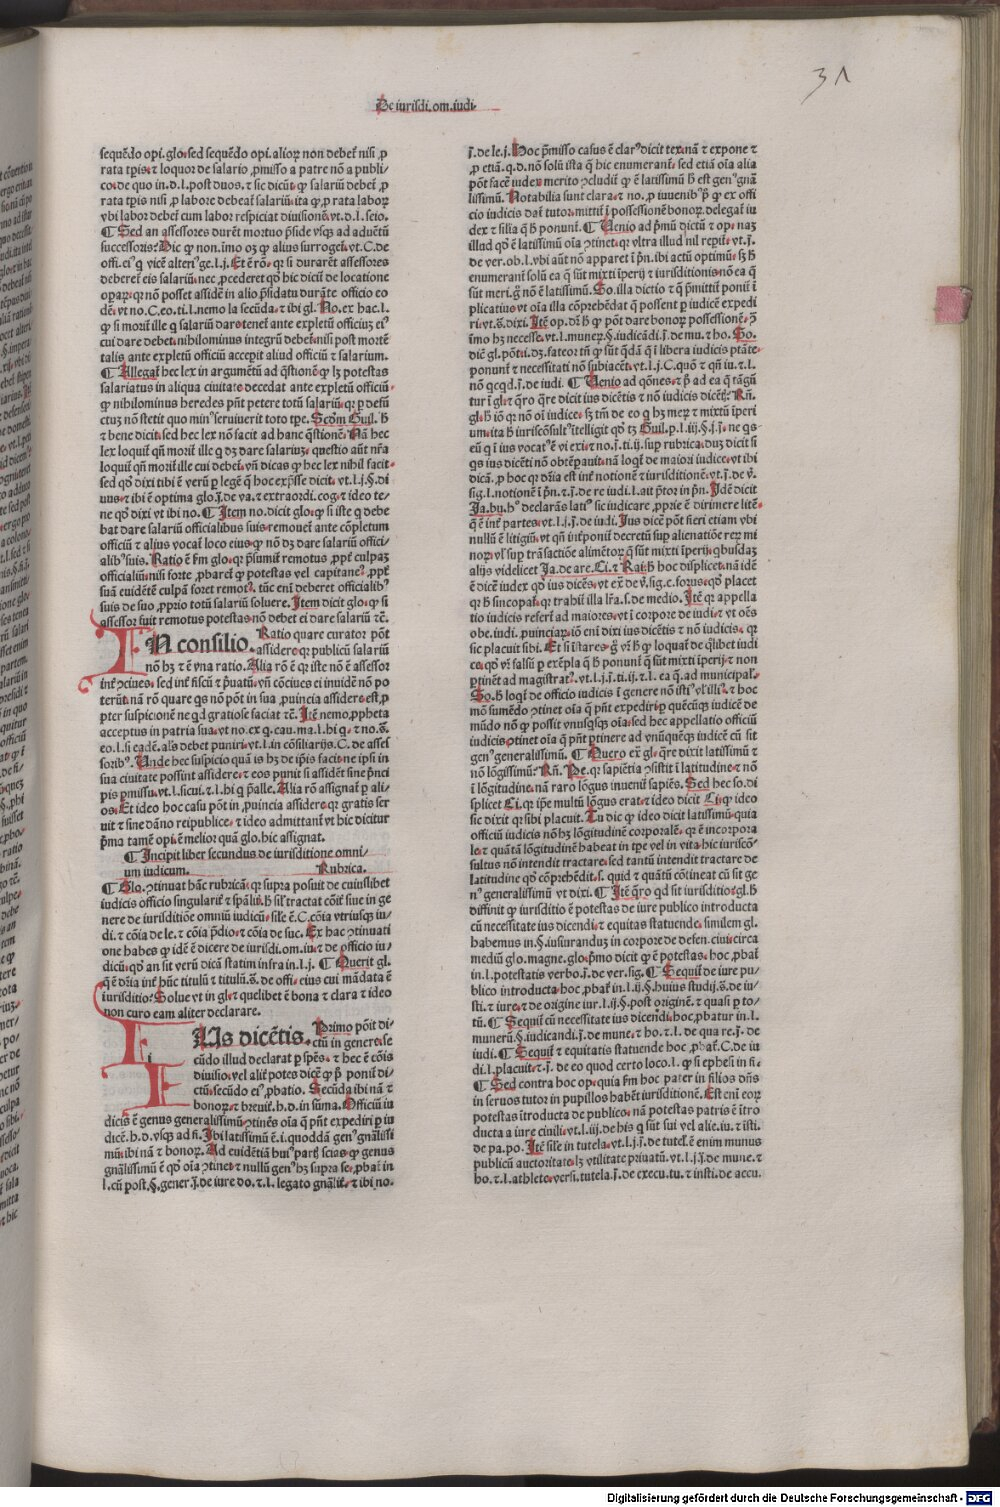 31
De iurisdi.om.iudi.
sequẽdo opi.glo.sed sequẽdo opi.alioꝝ non debet nisi ꝓ
rata tꝑis.⁊ loquor de salario ꝓmisso a patre nõ a publi-
co.de quo in.d.l.post duos.⁊ sic dicũt ꝙ salariũ debet ꝓ
rata tꝑis nisi ꝓ labore debeat salariũ.ita ꝙ ꝓ rata laboꝝ
vbi labor debet cum labor respiciat diuisionẽ.vt.d.l.seio.
¶ Sed an assessores durẽt mortuo p̃side vsqꝫ ad aduẽtũ
successoris? Dic ꝙ non.imo oꝫ ꝙ alius surroget.vt.C.de
offi.ei⁹ q̃ vicẽ alteri⁹ ge.l.j. Et ẽ rõ.qꝛ si durarẽt assessores
deberet eis salariũ.nec ꝓcederet qđ hic dicit̃ de locatione
opaꝝ.qꝛ nõ posset assidẽ in alio p̃sidatu durãte officio eo
dẽ.vt no.C.eo.ti.l.nemo.la secũda.⁊ ibi gl. No.ex hac.l.
ꝙ si morit̃ ille q̃ salariũ dare tenet̃ ante expletũ officiũ ei⁹
cui dare debet.nihilominus integrũ debet.nisi post mortẽ
talis ante expletũ officiũ accepit aliud officiũ ⁊ salarium.
¶ Allegat̃ hec lex in argumẽtũ ad q̃stionẽ ꝙ lꝫ potestas
salariatus in aliqua ciuitate decedat ante expletũ officiũ.
ꝙ nihilominus heredes pñt petere totũ salariũ.qꝛ ꝑ defũ
ctuꝫ nõ stetit quo min⁹ seruiuerit toto tꝑe. Scđm Guil. h̃
⁊ bene dicit.sed hec lex nõ facit ad hanc q̃stionẽ. Nã hec
lex loquit̃ qñ morit̃ ille q̃ dꝫ dare salariuꝫ.questio aũt nr̃a
loquit̃ qñ morit̃ ille cui debet.vñ dicas ꝙ hec lex nihil facit.
sed qđ dixi tibi ẽ verũ ꝑ legẽ q̃ hoc exp̃sse dicit.vt.l.j.§.di
uus.⁊ ibi ẽ optima glo.j̃.de va.⁊ extraordi.cog.⁊ ideo te-
ne qđ dixi vt ibi no. ¶ Item no.dicit glo.ꝙ si iste q̃ debe
bat dare salariũ officialibus suis remouet̃ ante cõpletum
officiũ ⁊ alius vocat̃ loco eius.ꝙ nõ dꝫ dare salariũ offici-
alib⁹ suis. Ratio ẽ ẽm glo.qꝛ p̃sumit̃ remotus ꝓpt̃ culpaꝫ
officialiũ.nisi forte ꝓbaret̃ ꝙ potestas vel capitane⁹ ꝓpt̃
suã euidẽtẽ culpã foret remot⁹.tũc enĩ deberet officialib⁹
suis de suo ꝓprio totũ salariũ soluere. Item dicit glo.ꝙ si
assessor fuit remotus potestas nõ debet ei dare salariũ ⁊c̃.
IN consilio. Ratio quare curator põt
assidere.qꝛ publicũ salariũ
nõ hꝫ ⁊ ẽ vna ratio. Alia rõ ẽ qꝛ iste nõ ẽ assessor
int̃ ↄciues.sed int̃ fiscũ ⁊ p̃uatũ.vñ cõciues ei inuidẽ nõ po
terũt.nã rõ quare qs nõ põt in sua ꝓuincia assidere est.ꝓ
pter suspicionẽ ne qđ gratiose faciat ⁊c̃. Itẽ nemo ꝓpheta
acceptus in patria sua.vt no.ex q̃.cau.ma.l.hi q̃.⁊ no.s̃.
eo.l.si eadẽ.als̃ debet puniri.vt.l.in cõsiliarijs.C.de asses
sorib⁹. Unde hec suspicio quã is hꝫ de ip̃is facit.ne ipsi in
sua ciuitate possint assidere.⁊ eos punit si assidẽt sine p̃nci
pis ꝑmissu.vt.l.sicut.⁊.l.hi q̃ p̃alle. Alia rõ assignat̃ ꝑ ali-
os. Et ideo hoc casu põt in ꝓuincia assidere.qꝛ gratis ser
uit ⁊ sine dãno reipublice.⁊ ideo admittant̃ vt hic dicitur
p̃ma tamẽ opi.ẽ melior quã glo.hic assignat.
¶ Incipit liber secundus de iurisditione omni-
um iudicum. Rubrica.
¶ Glo.ↄtinuat hãc rubricã.qꝛ supra posuit de cuiuslibet
iudicis officio singularit̃ ⁊ sp̃alit̃.h̃ sil̃r tractat cõit̃ siue in ge
nere de iurisditiõe omniũ iudicũ.sil̃e ẽ.C.cõia vtriusqꝫ iu-
di.⁊ cõia de le.⁊ cõia p̃dio.⁊ cõia de suc. Ex hac ↄtinuati
one habes ꝙ idẽ ẽ dicere de iurisdi.om.iu.⁊ de officio iu-
dicũ.qđ an sit verũ dicã statim infra in.l.j. ¶ Querit gl.
q̃ ẽ dr̃ia int̃ hũc titulũ ⁊ titulũ.s̃.de offi.eius cui mãdata ẽ
iurisditio? Solue vt in gl.⁊ quelibet ẽ bona ⁊ clara ⁊ ideo
non curo eam aliter declarare.
IUs dicẽtis. Primo põit di-
ctũ in genere.se
cũdo illud declarat ꝑ spẽs.⁊ hec ẽ cõis
diuisio.vel alit̃ potes dicẽ ꝙ p̃ ponit̃ di
ctũ.secũdo ei⁹ ꝓbatio. Secũda ibi nã ⁊
bonoꝝ.⁊ breuit̃.h.d.in sũma. Officiũ iu
dicis ẽ genus generalissimũ ↄtinẽs oĩa q̃ pñt expediri ꝑ iu
dicẽ.h.d.vsqꝫ ad fi. Ibi latissimũ ẽ.i.quoddã gen⁹ gñalissi
mũ.ibi nã ⁊ bonoꝝ. Ad euidẽtiã hui⁹ partꝭ scias ꝙ genus
gñalissimũ ẽ qđ oĩa ↄtinet ⁊ nullũ gen⁹ hꝫ supra se.ꝓbat̃ in
l.cũ post.§.gener.j̃.de iure do.⁊.l.legato gñalit̃.⁊ ibi no.
j̃.de le.j. Hoc p̃misso casus ẽ clar⁹ dicit tex.nã ⁊ expone ⁊
ꝓ etiã.q.d.nõ solũ ista q̃ hic enumerant̃.sed etiã oĩa alia
põt facẽ iudex merito ↄcludit̃ ꝙ ẽ latissimũ h̃ est gen⁹ gnã
lissimũ. Notabilia sunt clara.⁊ no.ꝓ iuuenib⁹ p̃ ꝙ ex offi
cio iudicis dat̃ tutor.mittit̃ ĩ possessionẽ bonoꝝ.delegat̃ iu
dex ⁊ silia q̃ h̃ ponunt̃. ¶ Uenio ad p̃mũ dictũ ⁊ op.naꝫ
illud qđ ẽ latissimũ oĩa ↄtinet.qꝛ vltra illud nil reꝑit̃.vt.j̃.
de ver.ob.l.vbi aũt nõ apparet ĩ p̃n.ibi actũ optimũ.sꝫ h̃
enumerant̃ solũ ea q̃ sũt mixti iꝑerij ⁊ iurisditionis nõ ea q̃
sũt meri.g̃ nõ ẽ latissimũ. So.illa dictio ⁊ q̃ p̃mittit̃ ponit̃ ĩ
plicatiue vt oĩa illa cõprehẽdat q̃ possent ꝑ iudicẽ expedi
ri.vt.s̃.dixi. Itẽ op.dr̃ h̃ ꝙ põt dare bonoꝝ possessionẽ.ꝯ
ĩmo hꝫ necesse.vt.l.muneꝝ.§.iudicãdi.j̃.de mu.⁊ ho. So.
dicit̃ gl.põt.i.dꝫ.fateor tñ ꝙ sũt q̃dã q̃ ĩ libera iudicis ptãte.
ponunt̃ ⁊ necessitati nõ subiacẽt.vt.l.j.C.quõ ⁊ qñ iu.⁊.l.
nõ qcqđ.j̃.de iudi. ¶ Uenio ad qõnes.⁊ p̃ ad ea q̃ tãgũ
tur ĩ gl.⁊ q̃ro q̃re dicit ius dicẽtis ⁊ nõ iudicis dicẽt? Rñ.
gl.h̃ iõ qꝛ nõ oĩ iudice.sꝫ tm̃ de eo q̃ hꝫ meꝝ ⁊ mixtũ iꝑeri
um.ita h̃ iuriscõsult⁹ ĩtelligit qđ tꝫ Guil.ꝑ.l.iij.§.j̃.j̃.ne qs
eũ q̃ ĩ ius vocat⁹ ẽ vi exi.⁊ no.j̃.ti.ij.suꝑ rubrica.duꝫ dicit si
qs ius dicẽti nõ obtẽpauit.nã loqt̃ de maiori iudice.vt ibi
dicã.ꝓ hoc qꝛ dr̃ia est int̃ notionẽ ⁊ iurisditionẽ.vt.j̃.de v̉.
sig.l.notionẽ ĩ p̃n.⁊.j̃.de re iudi.l.ait p̃tor in p̃n. Idẽ dicit
Ja.bu.h⁹ declarãs lati⁹ sic iudicare ꝓprie ẽ dirimere litẽ.
q̃ ẽ int̃ partes.vt.l.j.j̃.de iudi. Ius dicẽ põt fieri etiam vbi
nullũ ẽ litigiũ.vt qñ int̃põnit decretũ suꝑ alienatiõe reꝝ mi
noꝝ.vl̃ suꝑ trãsactiõe alimẽtoꝝ q̃ sũt mixti iꝑerij.q̃busdaꝫ
alijs videlicet Ja.de are.Ci.⁊ Rai.h̃ hoc displicet.nã idẽ
ẽ dicẽ iudex qđ ius dicẽs.vt eẽ de v̉.sig.c.forus.qđ placet
qꝛ h̃ sincopat̃.qꝛ trahit̃ illa lr̃a.s.de medio. Itẽ qꝛ appella
tio iudicis refert̃ ad maiores.vt ĩ corpore de iudi.⁊ vt oẽs
obe.iudi.ꝓuinciaꝝ.iõ enĩ dixi ius dicẽtis ⁊ nõ iudicis.qꝛ
sic placuit sibi. Et si ĩstares.g̃ vr̃ h̃ ꝙ loquat̃ de q̃libet iudi
ce.qđ vr̃ falsũ ꝑ exẽpla q̃ h̃ ponunt̃ q̃ sũt mixti iꝑerij.⁊ non
ꝑtinẽt ad magistrat⁹.vt.l.j.j̃.ti.ij.⁊.l.ea q̃.ad municipal̃.
So.h̃ loqt̃ de officio iudicis ĩ genere nõ isti⁹ vl̃ illi⁹.⁊ hoc
mõ sumẽdo ↄtinet oĩa q̃ pñt expediri ꝑ quẽcũqꝫ iudicẽ de
mũdo nõ ꝙ possit vnusqsqꝫ oĩa.sed hec appellatio officiũ
iudicis ↄtinet oĩa q̃ pñt ꝑtinere ad vnũquẽqꝫ iudicẽ cũ sit
gen⁹ generalissimũ. ¶ Quero ex gl.q̃re dixit latissimũ ⁊
nõ lõgissimũ? Rñ. Pe.qꝛ sapiẽtia ↄsistit ĩ latitudine.⁊ nõ
ĩ lõgitudine.nã raro lõgus inuenit̃ sapiẽs. Sed hec so.di
splicet Ci.qꝛ ip̃e multũ lõgus erat.⁊ ideo dicit Ci.ꝙ ideo
sic dixit qꝛ sibi placuit. Tu dic ꝙ ideo dicit latissimũ.quia
officiũ iudicis nõ hꝫ lõgitudinẽ corporalẽ.qꝛ ẽ incorpora
le.⁊ quãtã lõgitudinẽ habeat in tꝑe vel in vita hic iuriscõ-
sultus nõ intendit tractare.sed tantũ intendit tractare de
latitudine qđ cõprehẽdit.s.quid ⁊ quãtũ cõtineat cũ sit ge
n⁹ generalissimũ vt dixi. ¶ Itẽ q̃ro qđ sit iurisditio.gl.h̃
diffinit ꝙ iurisditio ẽ potestas de iure publico introducta
cũ necessitate ius dicendi.⁊ equitatis statuende.similem gl.
habemus in.§.iusiuranduꝫ in corpore de defen.ciui.circa
mediũ glo.magne.glo.p̃mo dicit ꝙ ẽ potestas.hoc ꝓbat̃
in.l.potestatis verbo.j̃.de ver.sig. ¶ Sequit̃ de iure pu-
blico introducta.hoc ꝓbat̃ in.l.ij.§.huius studij.s̃.de iu-
sti.⁊ iure.⁊ de origine iur.l.ij.§.post originẽ.⁊ quasi ꝑ to-
tũ. ¶ Sequit̃ cũ necessitate ius dicendi.hoc ꝓbatur in.l.
munerũ.§.iudicandi.j̃.de mune.⁊ ho.⁊.l.de qua re.j̃.de
iudi. ¶ Sequit̃ ⁊ equitatis statuende hoc ꝓbat̃.C.de iu
di.l.placuit.⁊.j̃.de eo quod certo loco.l.ꝙ si ephesi in fi.
¶ Sed contra hoc op.quia ẽm hoc pater in filios dñs
in seruos tutor in pupillos habẽt iurisditionẽ. Est enĩ eoꝝ
potestas ĩtroducta de publico.nã potestas patris ẽ ĩtro
ducta a iure ciuili.vt.l.iij.de his q̃ sũt sui vel alie.iu.⁊ ĩsti.
de pa.po. Itẽ sil̃e in tutela.vt.l.j.j̃.de tutel.ẽ enim munus
publicũ auctoritate.lꝫ vtilitate priuatũ.vt.l.j.j̃.de mune.⁊
ho.⁊.l.athlete.versi.tutela.j̃.de execu.tu.⁊ insti.de accu.
Digitalisierung gefördert durch die Deutsche Forschungsgemeinschaft - DFG